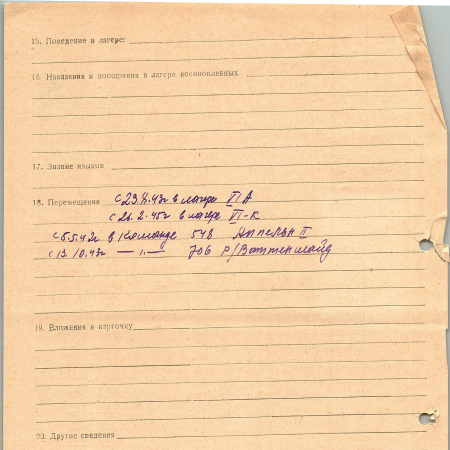 15. Поведение в лагере:
16. Наказания и поощрения в лагере военнопленных
17. Знание языков
18. Перемещения с 23.4.43г в лагере VI A
с 26.2.45г в лагере VI-К
с 5.5.42г в команде 548 Аппельн II
с 13.10.43г — 1. — 706 Р/Ваттеншайд
19. Вложения в карточку
20. Другие сведения